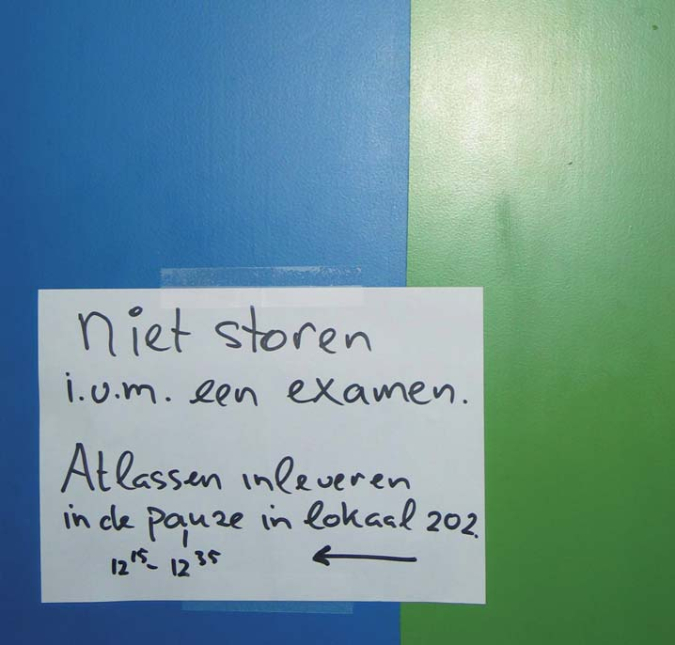 niet storen
i.v.m. een examen.
Atlassen inleveren
in de pauze in lokaal 202.
12¹⁵- 12³⁵